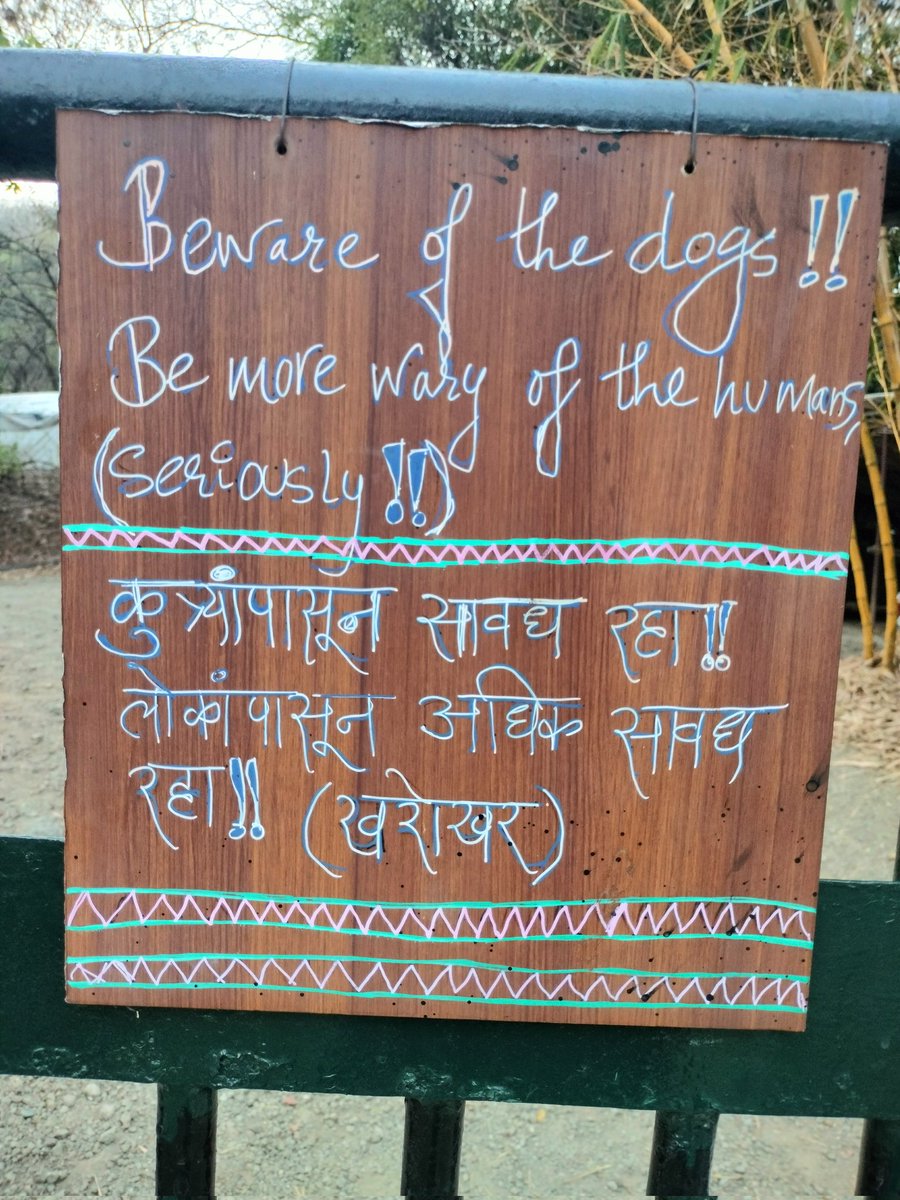 Beware of the dogs!!
Be more wary of the humans,
(Seriously!!)
कुत्र्यांपासून सावध रहा!!
लोकांपासून अधिक सावध
रहा!! (खरोखर)